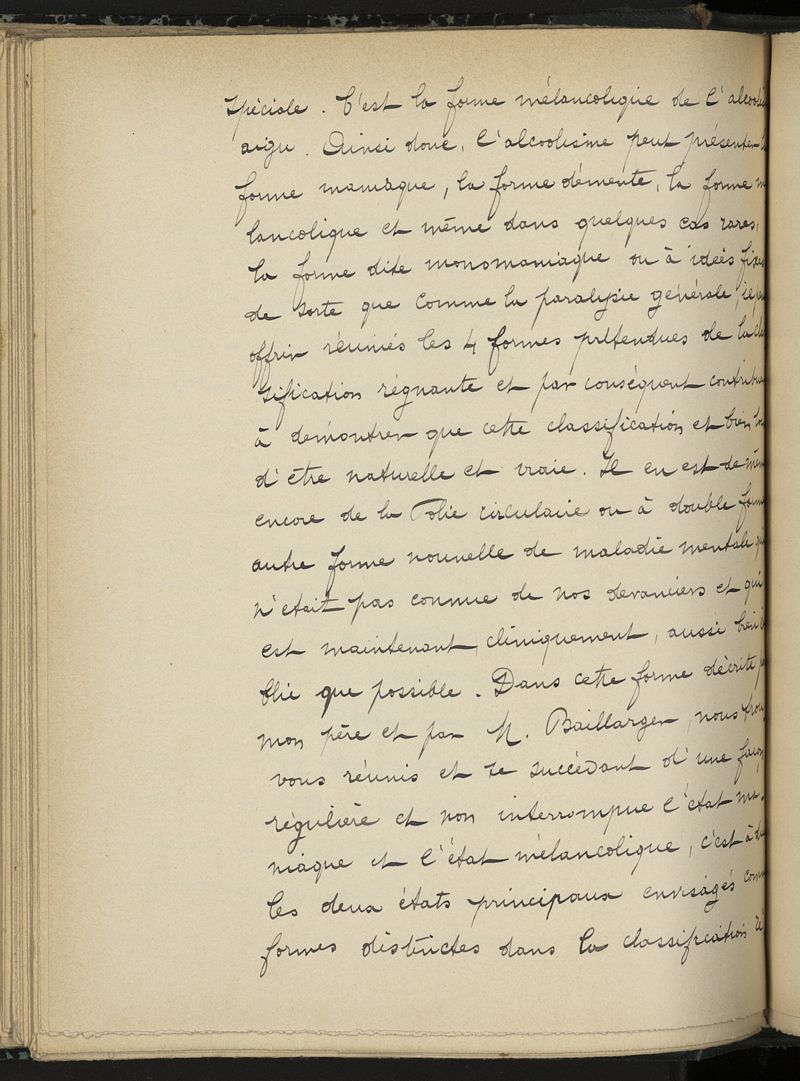 spéciale. C'est la forme mélancolique de l'alcooli
aigu. Ainsi donc, l'alcoolisme peut présenter l
forme maniaque, la forme démente, la forme m
lancolique et même dans quelques cas rares,
la forme dite monomaniaque ou à idées fixes
de sorte que comme la paralysie générale, il
offrir réunies les 4 formes prétendues de la cla
sification régnante et par conséquent contribue
à démontrer que cette classification et bien loin
d'être naturelle et vraie. Il en est de même
encore de la Folie circulaire ou à double forme
autre forme nouvelle de maladie mentale qui
n'était pas connue de nos devanciers et qui
est maintenant, cliniquement, aussi bien é
blie que possible. Dans cette forme décrite p
mon père et par M. Baillarger, nous trou
vons réunis et se succédant d'une façon
régulière et non interrompue l'état ma-
niaque et l'état mélancolique, c'est à di
les deux états principaux envisagés com
formes distinctes dans la classification ré